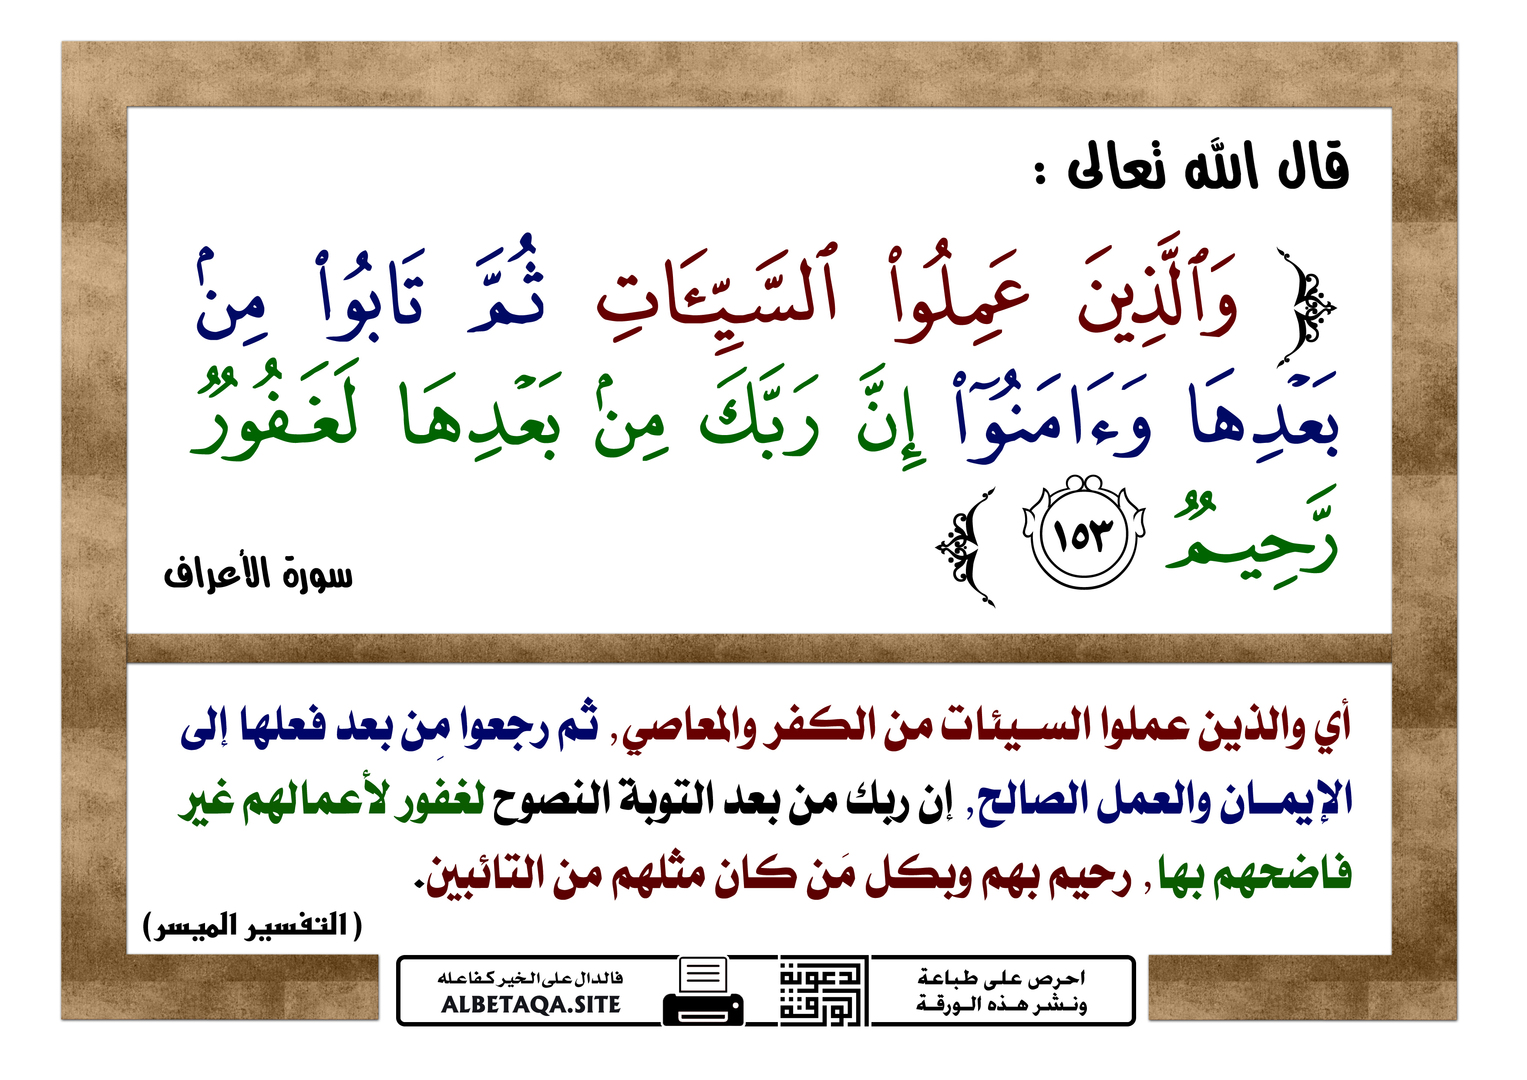 قال الله تعالى :
﴿ وَٱلَّذِينَ عَمِلُوا۟ ٱلسَّيِّـَٔاتِ ثُمَّ تَابُوا۟ مِنۢ
بَعْدِهَا وَءَامَنُوٓا۟ إِنَّ رَبَّكَ مِنۢ بَعْدِهَا لَغَفُورٌ
رَّحِيمٌ ١٥٣ ﴾
سورة الأعراف
أي والذين عملوا السيئات من الكفر والمعاصي, ثم رجعوا مِن بعد فعلها إلى
الإيمان والعمل الصالح, إن ربك من بعد التوبة النصوح لغفور لأعمالهم غير
فاضحهم بها, رحيم بهم وبكل مَن كان مثلهم من التائبين.
( التفسير الميسر)
احرص على طباعة
ونشر هذه الورقة
الدعوية
الورقة
فالدال على الخير كفاعله
ALBETAQA.SITE